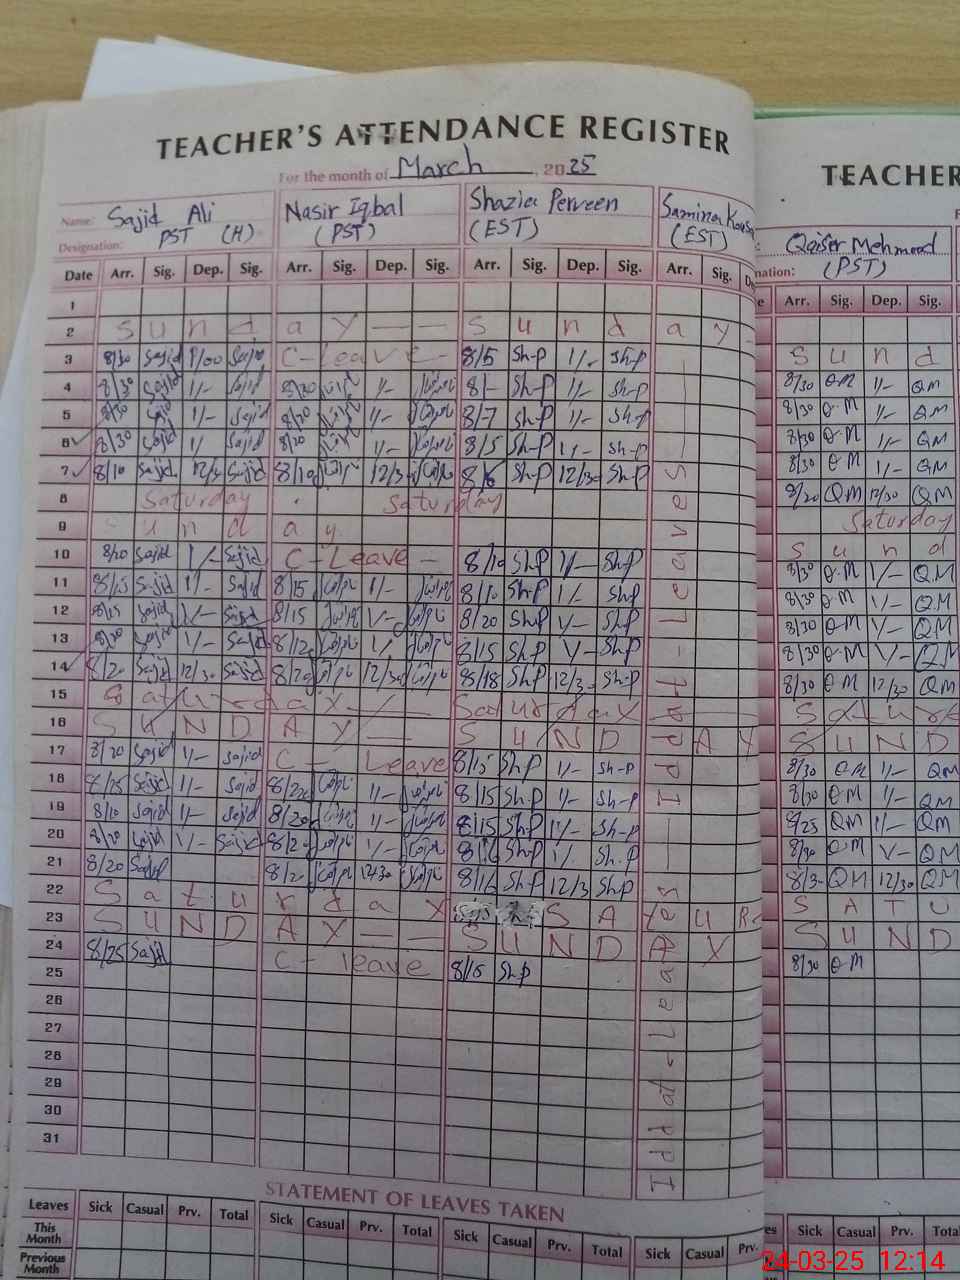 TEACHER'S ATTENDANCE REGISTER
For the month of March, 2025
TEACHER
Name: Sajid Ali Nasir Iqbal Shazia Perveen Samina
Designation: PST (H) (PST) (EST) (EST)
Qaiser Mehmood
(PST)
Date Arr. Sig. Dep. Sig. Arr. Sig. Dep. Sig. Arr. Sig. Dep. Sig. Arr. Sig. Arr. Sig. Dep. Sig.
1
2 Sunday — — Sund ay
3 8/30 Sajid 1/00 Sajid C-Leave — 8/5 Sh-P 1/- Sh-P Sund
4 8/30 Sajid 1/- Sajid 8/20 1/- 8/- Sh-P 1/- Sh-P 8/30 Q-M 1/- QM
5 8/30 Sajid 1/- Sajid 8/20 1/- 8/7 Sh-P 1/- Sh-P 8/30 Q-M 1/- QM
6 8/30 Sajid 1/ Sajid 8/20 1/- 8/5 Sh-P 1/- Sh-P 8/30 Q-M 1/- QM
7 8/10 Sajid Sajid 8/10 12/30 8/6 Sh-P 12/30 Sh-P 8/30 Q-M 1/- QM
8 Saturday Saturday 8/20 QM 12/30 QM
9 Sunday Saturday
10 8/20 Sajid 1/- Sajid C-Leave — 8/10 Sh-P 1/- Sh-P Sund
11 8/15 Sajid 1/- Sajid 8/15 1/- 8/10 Sh-P 1/- Sh-P 8/30 Q-M 1/- QM
12 8/15 Sajid 1/- Sajid 8/15 1/- 8/20 Sh-P 1/- Sh-P 8/30 Q-M 1/- Q.M
13 8/20 Sajid 1/- Sajid 8/12 1/ 8/15 Sh-P 1/- Sh-P 8/30 Q-M 1/- QM
14 8/20 Sajid 12/30 Sajid 8/20 12/30 8/18 Sh-P 12/30 Sh-P 8/30 Q-M 1/- QM
15 Saturday — Saturday 8/30 Q-M 12/30 QM
16 SUNDAY — SUND AY Satur
17 8/20 Sajid 1/- Sajid C- Leave 8/15 Sh-P 1/- Sh-P SUND
18 8/15 Sajid 1/- Sajid 8/20 1/- 8/15 Sh-P 1/- Sh-P 8/30 QM 1/- QM
19 8/10 Sajid 1/- Sajid 8/20 1/- 8/15 Sh-P 1/- Sh-P 8/30 Q-M 1/- QM
20 8/20 Sajid 1/- Sajid 8/20 1/- 8/16 Sh-P 1/. Sh-P 8/25 QM 1/- QM
21 8/20 Sajid 8/20 12/30 8/16 Sh-P 12/3 Sh-P 8/30 Q-M 1/- QM
22 Saturday SA UR 8/30 QM 12/30 QM
23 SUNDAY — — SUND AY SATU
24 8/25 Sajid C- leave 8/15 Sh-P SUND
25 8/30 Q-M
26
27
28
29
30
31
Iddat-Leaves
Iddat-Leaves
STATEMENT OF LEAVES TAKEN
Leaves Sick Casual Prv. Total Sick Casual Prv. Total Sick Casual Prv. Total Sick Casual Prv. Sick Casual Prv. Total
This Month
Previous Month
24-03-25 12:14